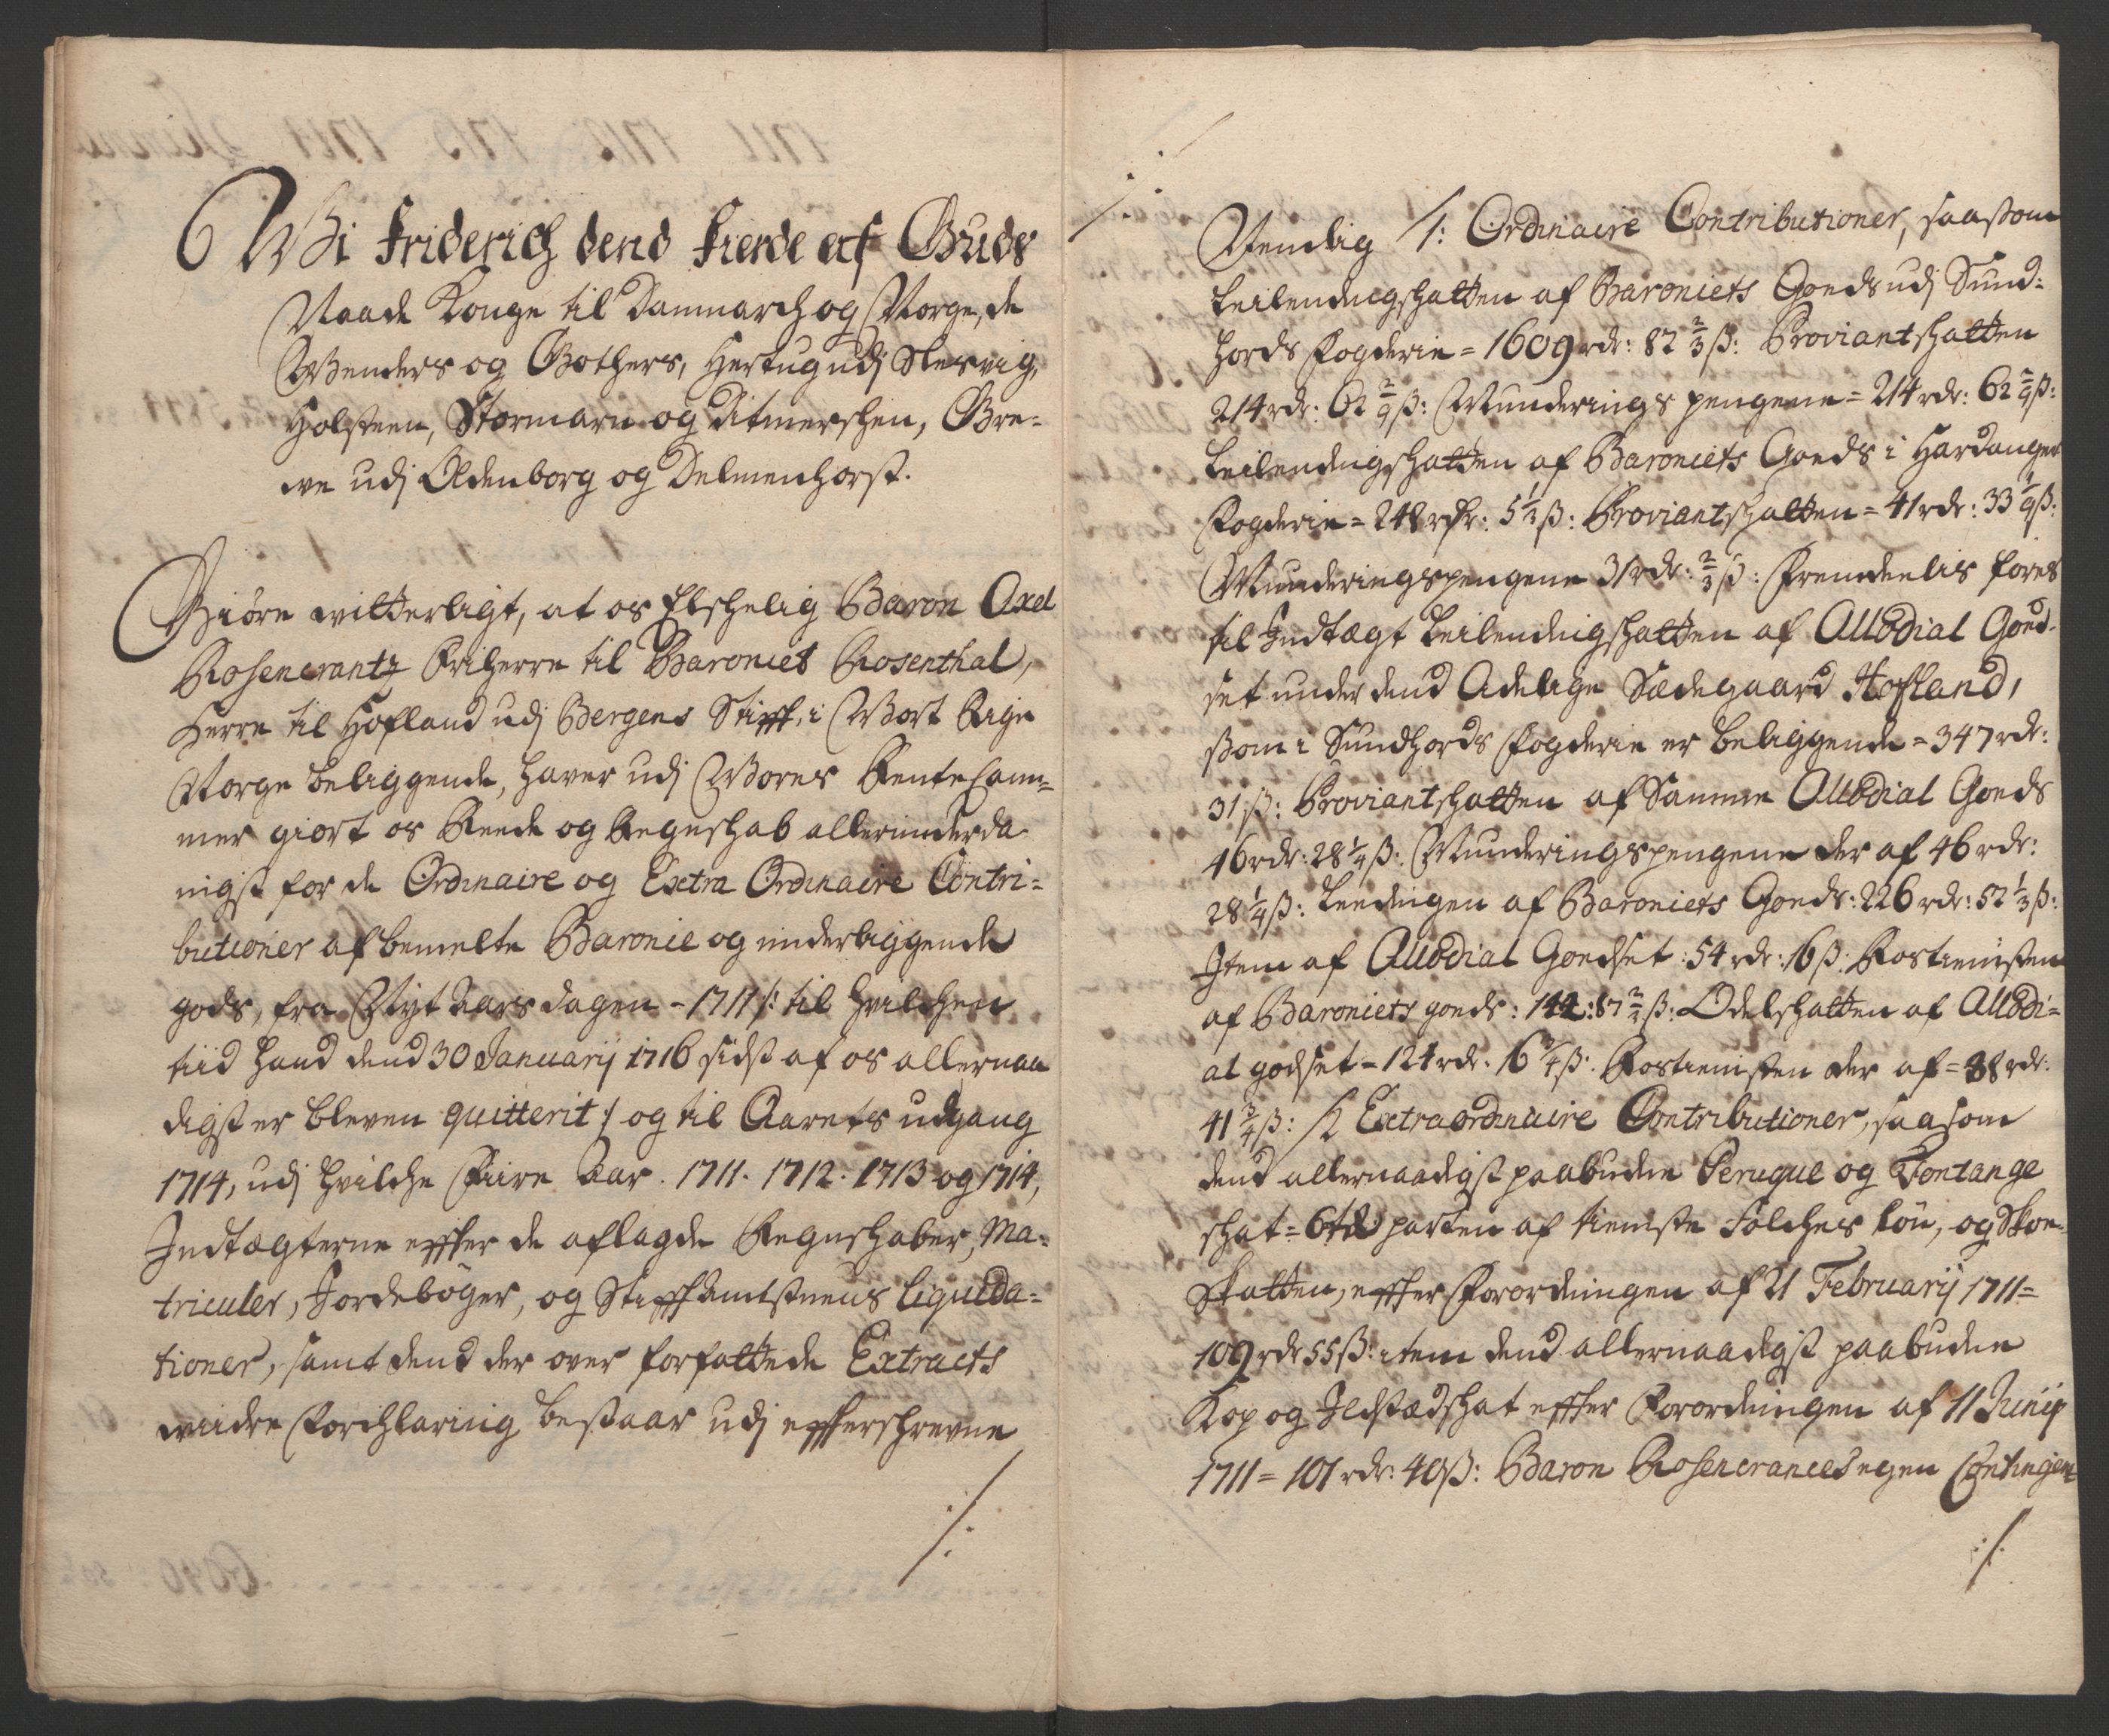 Wi Friderich dend Fierde af Guds
Naade Konge til Danmarch og Norge, de
Wenders og Gothers, Hertug udj Slesvig,
Holsteen, Stormarn og Ditmerschen, Gre=
we udj Oldenborg og Delmenhorst.
Giöre witterligt, at os Elschelig Baron Axel
Rosencrantz Friherre til Baroniet Rosenthal,
Herre til Hofland udj Bergens Stifft, i Wort Rige
Norge beliggende, haver udj Wores Rente Cam=
mer giort os Reede og Regnschab allerunderda
nigst for de Ordinaire og Extra Ordinaire Contri=
butioner af bemelte Baronie og underliggende
gods, fra Nyt Aars dagen - 1711 /: til hvilchen
tiid hand dend 30 Januarij 1716 sidst af os allernaa
digst er bleven quitterit :/ og til Aarets udgang
1714, udj hvilche Fiire Aar. 1711. 1712. 1713 og 1714,
Indtægterne effter de aflagde Regnschaber, Ma=
triculer, Jordebøger, og Stifft Amtstuens Liquida=
tioner, samt dend der over forfattede Extracts
widre Forchlaring bestaar udj efftterschrevne
./.
./.
Nemlig /1: Ordinaire Contributioner, saasom
Leilendigschatten af Baroniets Goeds udj Sund=
hords Fogderie = 1609 rdr: 82 2/3 ß: Proviantschatten
214 rdr: 62 2/9 ß: Munderings pengene = 214 rdr: 62 2/9 ß:
Leilendigschatten af Baroniets Goeds i Hardanger
Fogderie = 248 rdr: 5 1/2 ß: Proviantschatten = 41 rdr: 33 1/9 ß:
Munderingspengene 31 rdr: 2/3 ß: Fremdeelis føres
til Indtægt Leilendigschatten af Allodial Goed-
set under dend Adelige Sædegaard Hofland,
som i Sundhords Fogderie er beliggende = 347 rdr:
31 ß: Proviantschatten af Samme Allodial Goeds
46 rdr: 28 1/4 ß: Munderingspengene der af 46 rdr:
28 1/4 ß: Leedingen af Baroniets Goeds: 226 rdr: 52 1/3 ß:
Item af Allodial Goedset: 54 rdr: 16 ß: Rostienisten
af Baroniets goeds: 144: 87 ß: Odelschatten af Allodi=
al godset = 124 rdr: 16 3/4 ß: Rostienisten der af = 38 rdr:
41 3/4 ß: /2 Extraordinaire Contributioner, saasom
dend allernaadigst paabudne Peruque og Fontange
schat = 6te parten af tieniste Folches løn, og Skoe
Skatten, effter Forordningen af 21 Februarij 1711 =
109 rdr 55 ß: item dend allernaadigst paabudne
Kop og Ildstædschat effter Forordningen af 11 Junij
1711 = 101 rdr: 40 ß: Baron Rosencrances egen Contingent
./.